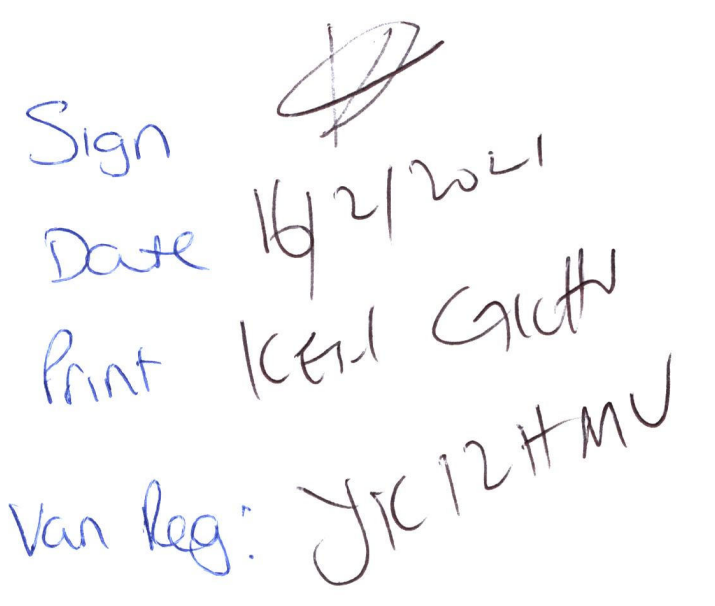 Sign
Date 16/2/2021
Print
Van Reg: YK12HMU